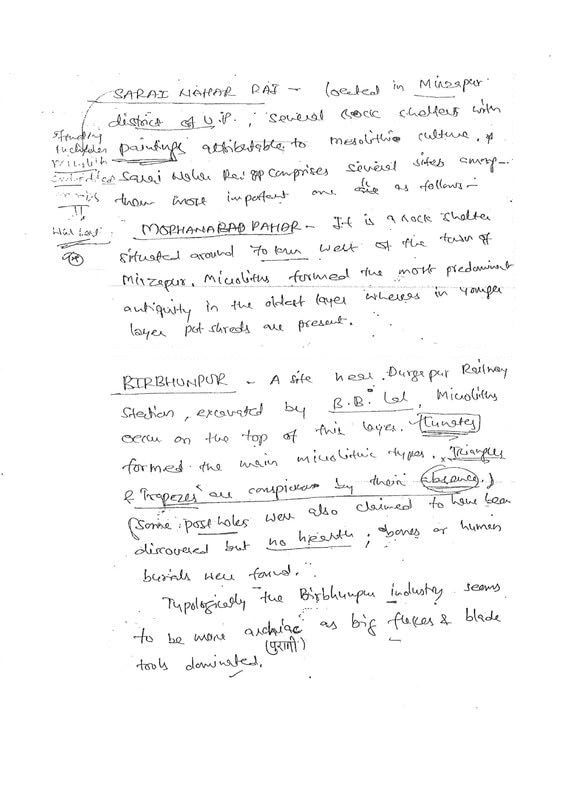 SARAI NAHAR RAI - Located in Mirzapur
district of U.P., Several rock shelters with
paintings attributable to mesolithic culture.
Sarai Nahar Rai comprises several sites among-
them more important one are as follows-
MORHANARAD PAHAR - It is a rock shelter
situated around 70 km West of the town of
Mirzapur. Microliths formed the most predominent
antiquity in the oldest layer whereas in younger
layer pot shreds are present.
BIRBHUNPUR - A site near Durgapur Railway
Station, excavated by B.B. Lal, Microliths
occur on the top of this layer. Lunates
formed the main microlithic types. Triangles
& Trapezes are conspicuous by their absence.)
(Some post holes were also claimed to have been
discovered but no hearth, bones or human
burials were found.
Typologically the Birbhunpur industry seems
to be more archiac as big flakes & blade
(पुरानी)
tools dominated.